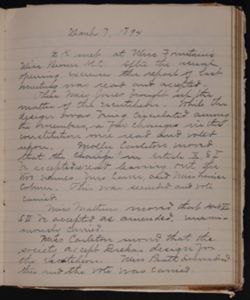 March 7, 1894
met at Miss Fountain's
Miss Brown H.C. After the usual
opening exercises the report of last
meeting was read and accepted.
Then Miss Jones brought up the
matter of the escutcheon. While the
design was being circulated among
the members, the changes in the
constitution were read and voted
upon. Molly Carleton moved
that the change in Article
be accepted leaving out the
names Jane Carver, and Miss
This was seconded and vote
carried.
Miss moved that Art II
be accepted as amended, unani-
mously carried.
Miss Carleton moved that the
society accept design for
the escutcheon. Miss Pratt seconded
this and the vote was carried.